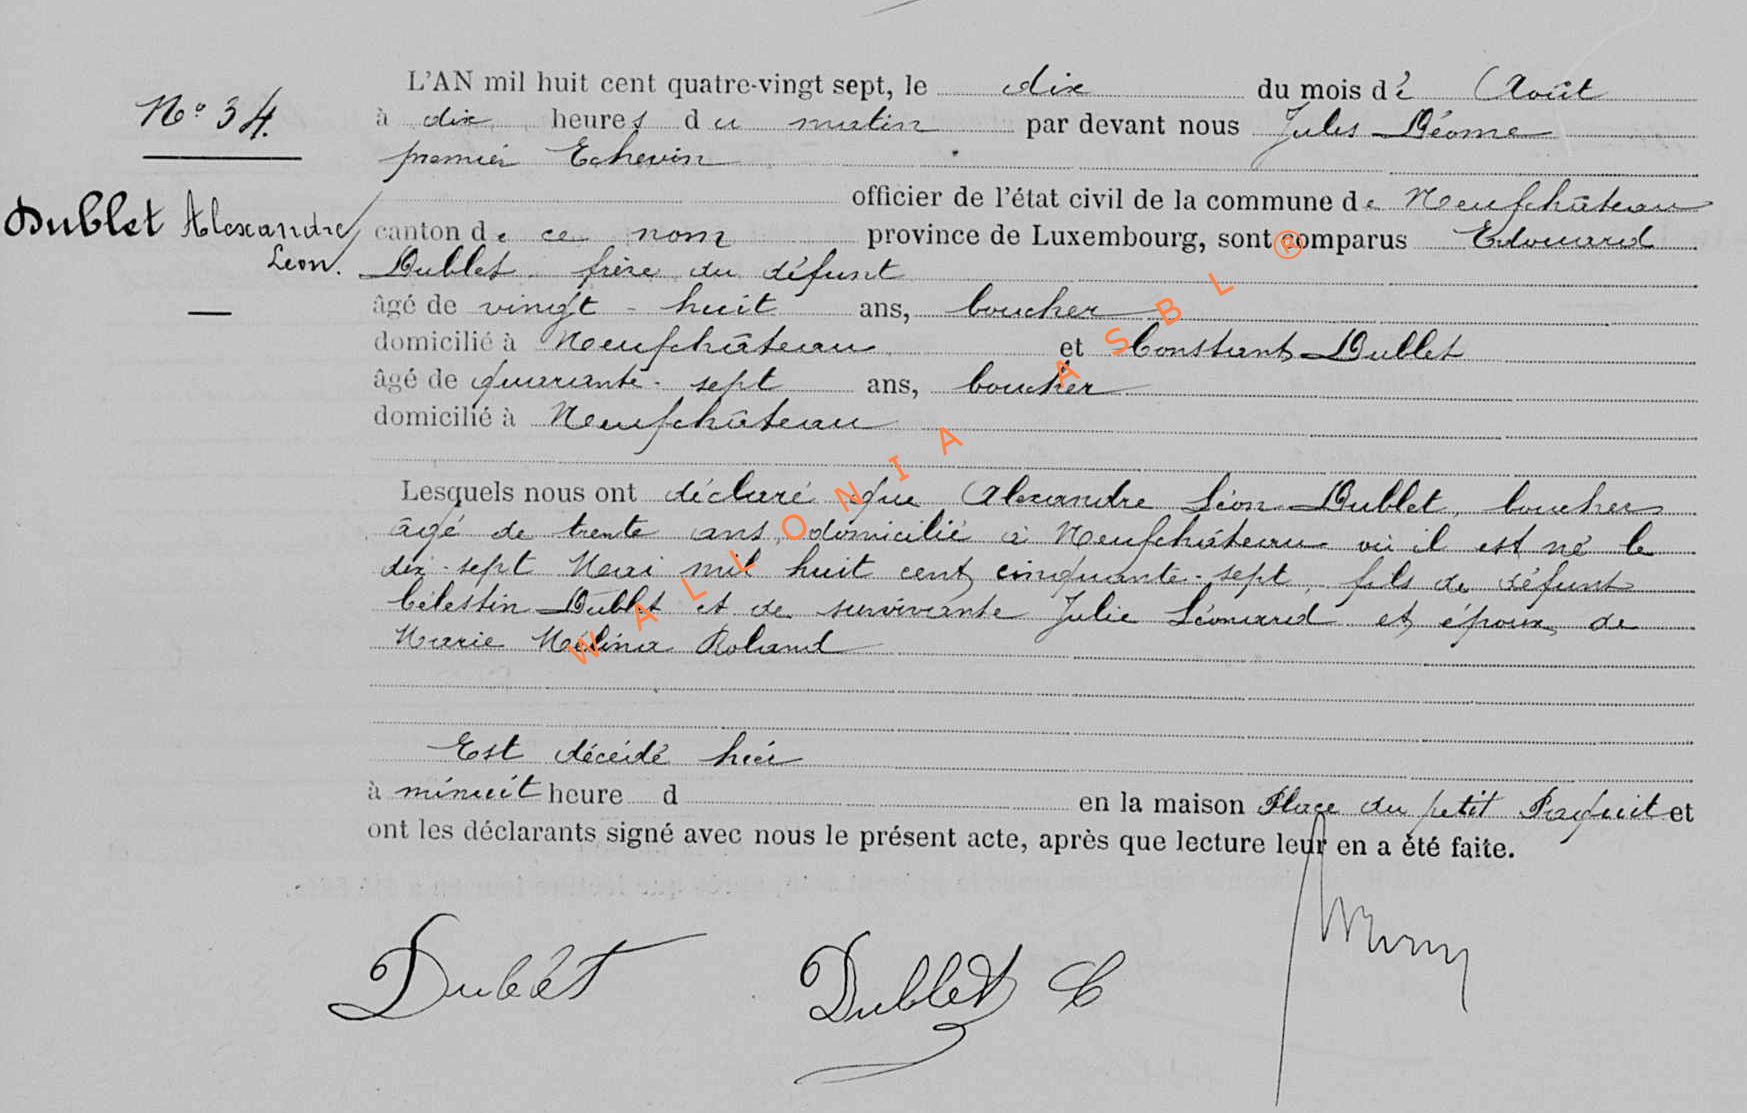 L'AN mil huit cent quatre-vingt sept, le dix du mois de Août
N° 34.
à dix heures du matin par devant nous Jules Déome
premier Echevin
officier de l'état civil de la commune de Neufchâteau
Dublet Alexandre
Léon.
canton de ce nom province de Luxembourg, sont comparus Edouard
Dublet frère du défunt
âgé de vingt-huit ans, boucher
domicilié à Neufchâteau et Constant Dublet
âgé de quarante-sept ans, boucher
domicilié à Neufchâteau
Lesquels nous ont déclaré que Alexandre Léon Dublet, boucher
âgé de trente ans, domicilié à Neufchâteau où il est né le
dix-sept Mai mil huit cent cinquante-sept, fils de défunt
Célestin Dublet et de survivante Julie Léonard et époux de
Marie Mélina Roland
Est décédé hier
à minuit heure d en la maison Place du petit et
ont les déclarants signé avec nous le présent acte, après que lecture leur en a été faite.
Dublet Dublet C
WALLONIA ASBL ®